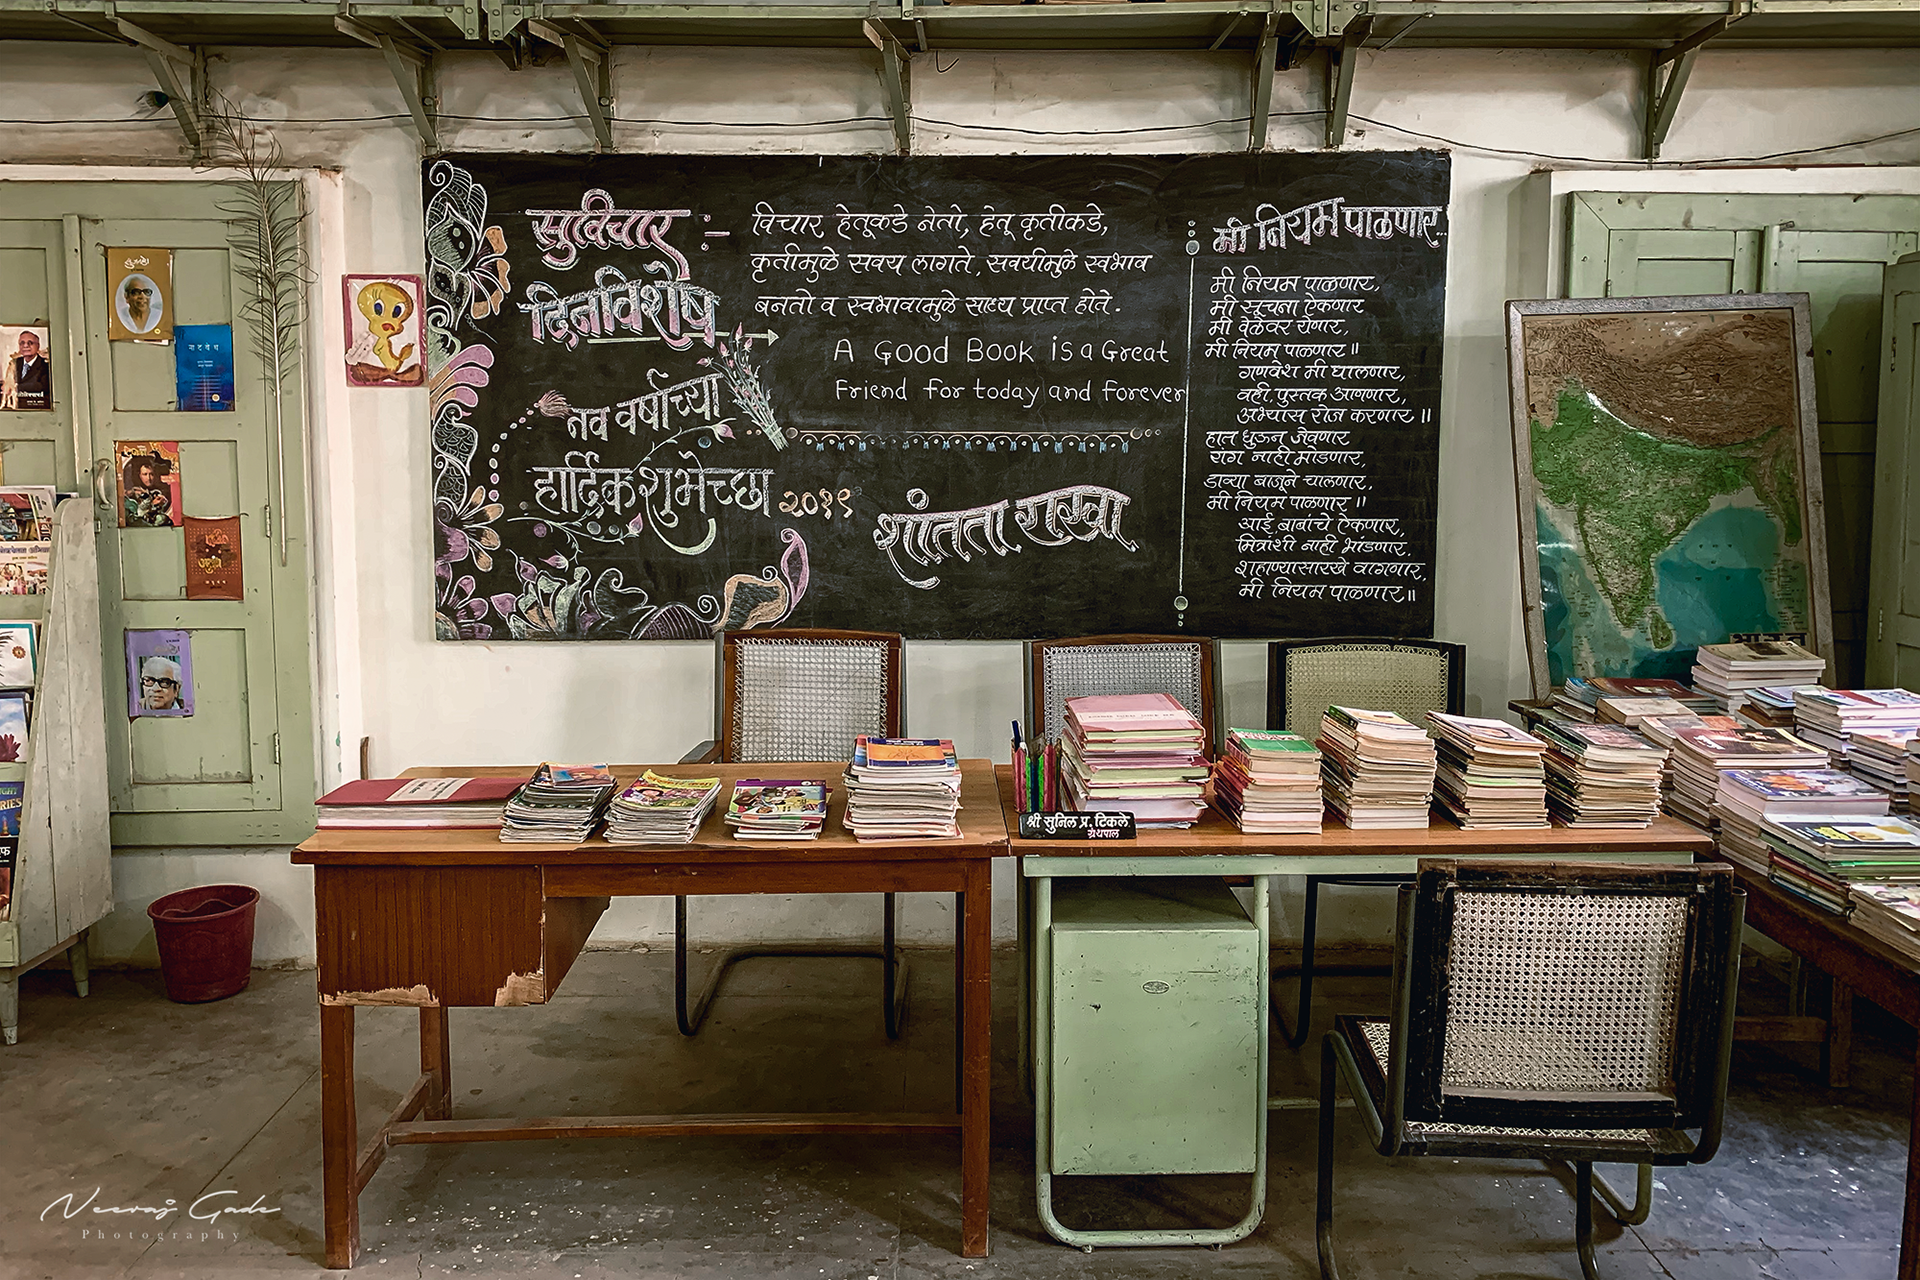 सुविचार :-
विचार हेतूकडे नेतो, हेतू कृतीकडे,
कृतीमुळे सवय लागते, सवयीमुळे स्वभाव
बनतो व स्वभावामुळे साध्य प्राप्त होते.
दिनविशेष
A Good Book is a Great
Friend for today and forever
नव वर्षाच्या
हार्दिक शुभेच्छा २०१९
शांतता राखा
मी नियम पाळणार...
मी नियम पाळणार,
मी सूचना ऐकणार
मी वेळेवर येणार,
मी नियम पाळणार॥
गणवेश मी घालणार,
वही, पुस्तक आणणार,
अभ्यास रोज करणार॥
हात धुऊन जेवणार
रांग नाही मोडणार,
डाव्या बाजूने चालणार,
मी नियम पाळणार॥
आई बाबांचे ऐकणार,
मित्रांशी नाही भांडणार.
शहाण्यासारखे वागणार,
मी नियम पाळणार॥
भारत
श्री सुनिल प्र. टिकले
ग्रंथपाल
Neeraj Gade
Photography